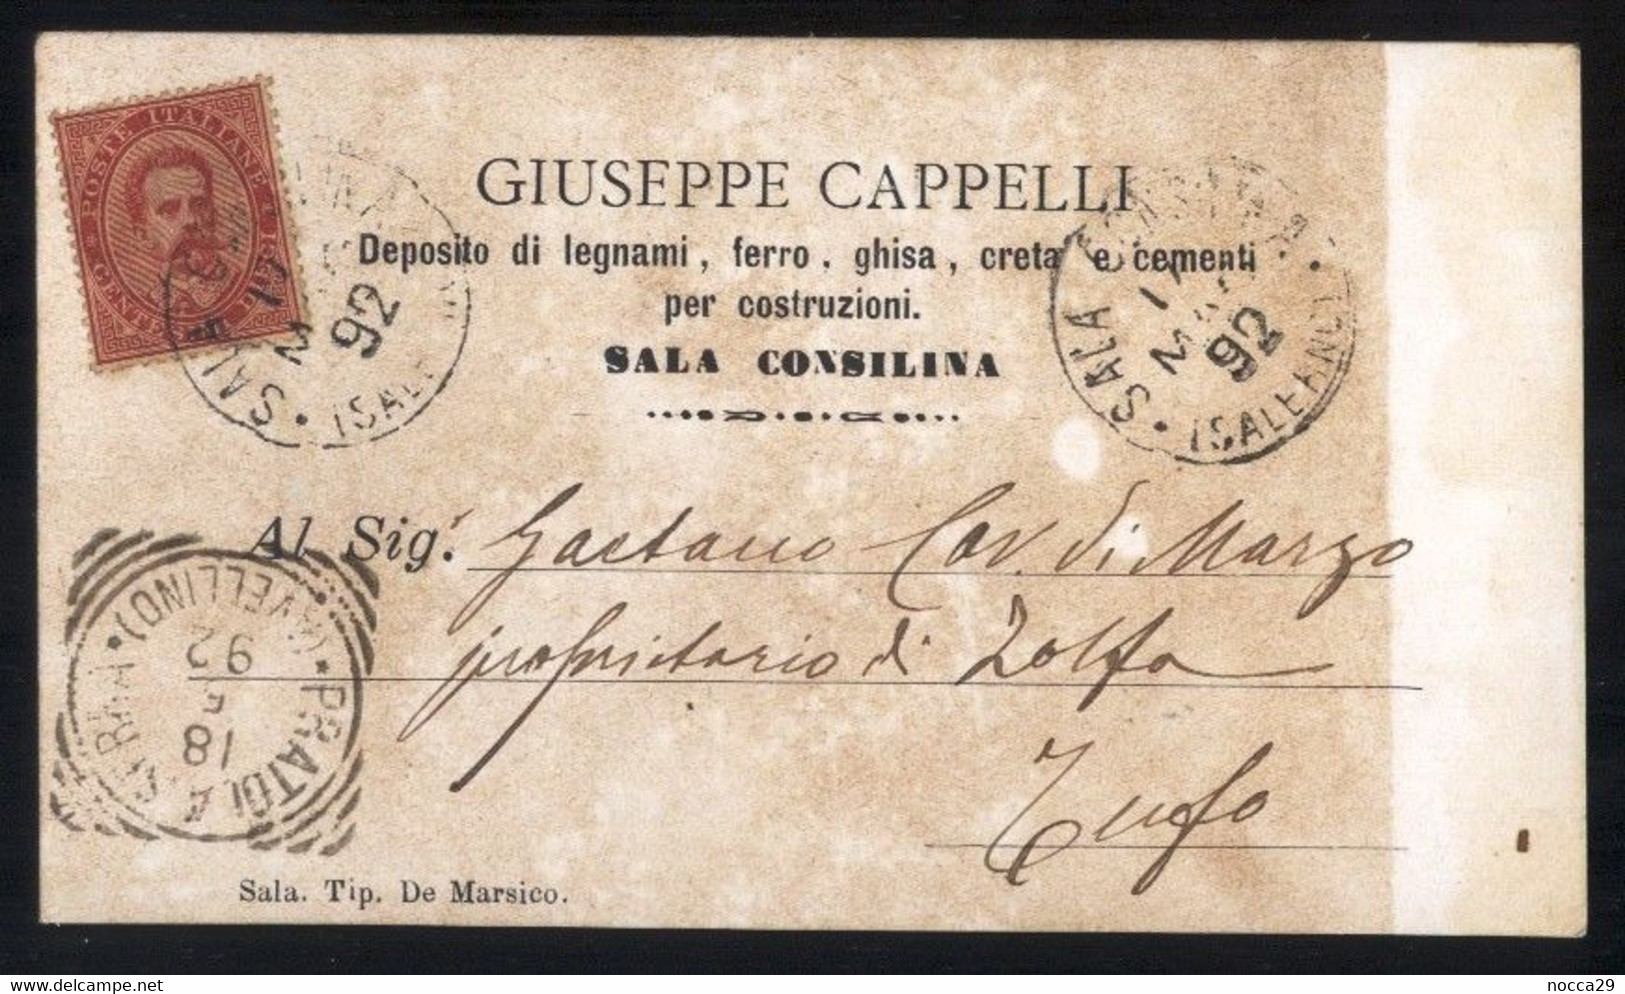 POSTE ITALIANE
DIECI
CENT
GIUSEPPE CAPPELLI
Deposito di legnami, ferro, ghisa, creta e cementi
per costruzioni.
SALA CONSILINA
SALA
17
92
(SAL
SALA CONSILINA
17
92
(SALERNO)
Al Sig.r Gaetano Cav. di Marzo
proprietario di Zolfo
Tufo
PRATOLA SERRA
(AVELLINO)
18
92
Sala. Tip. De Marsico.
nocca29